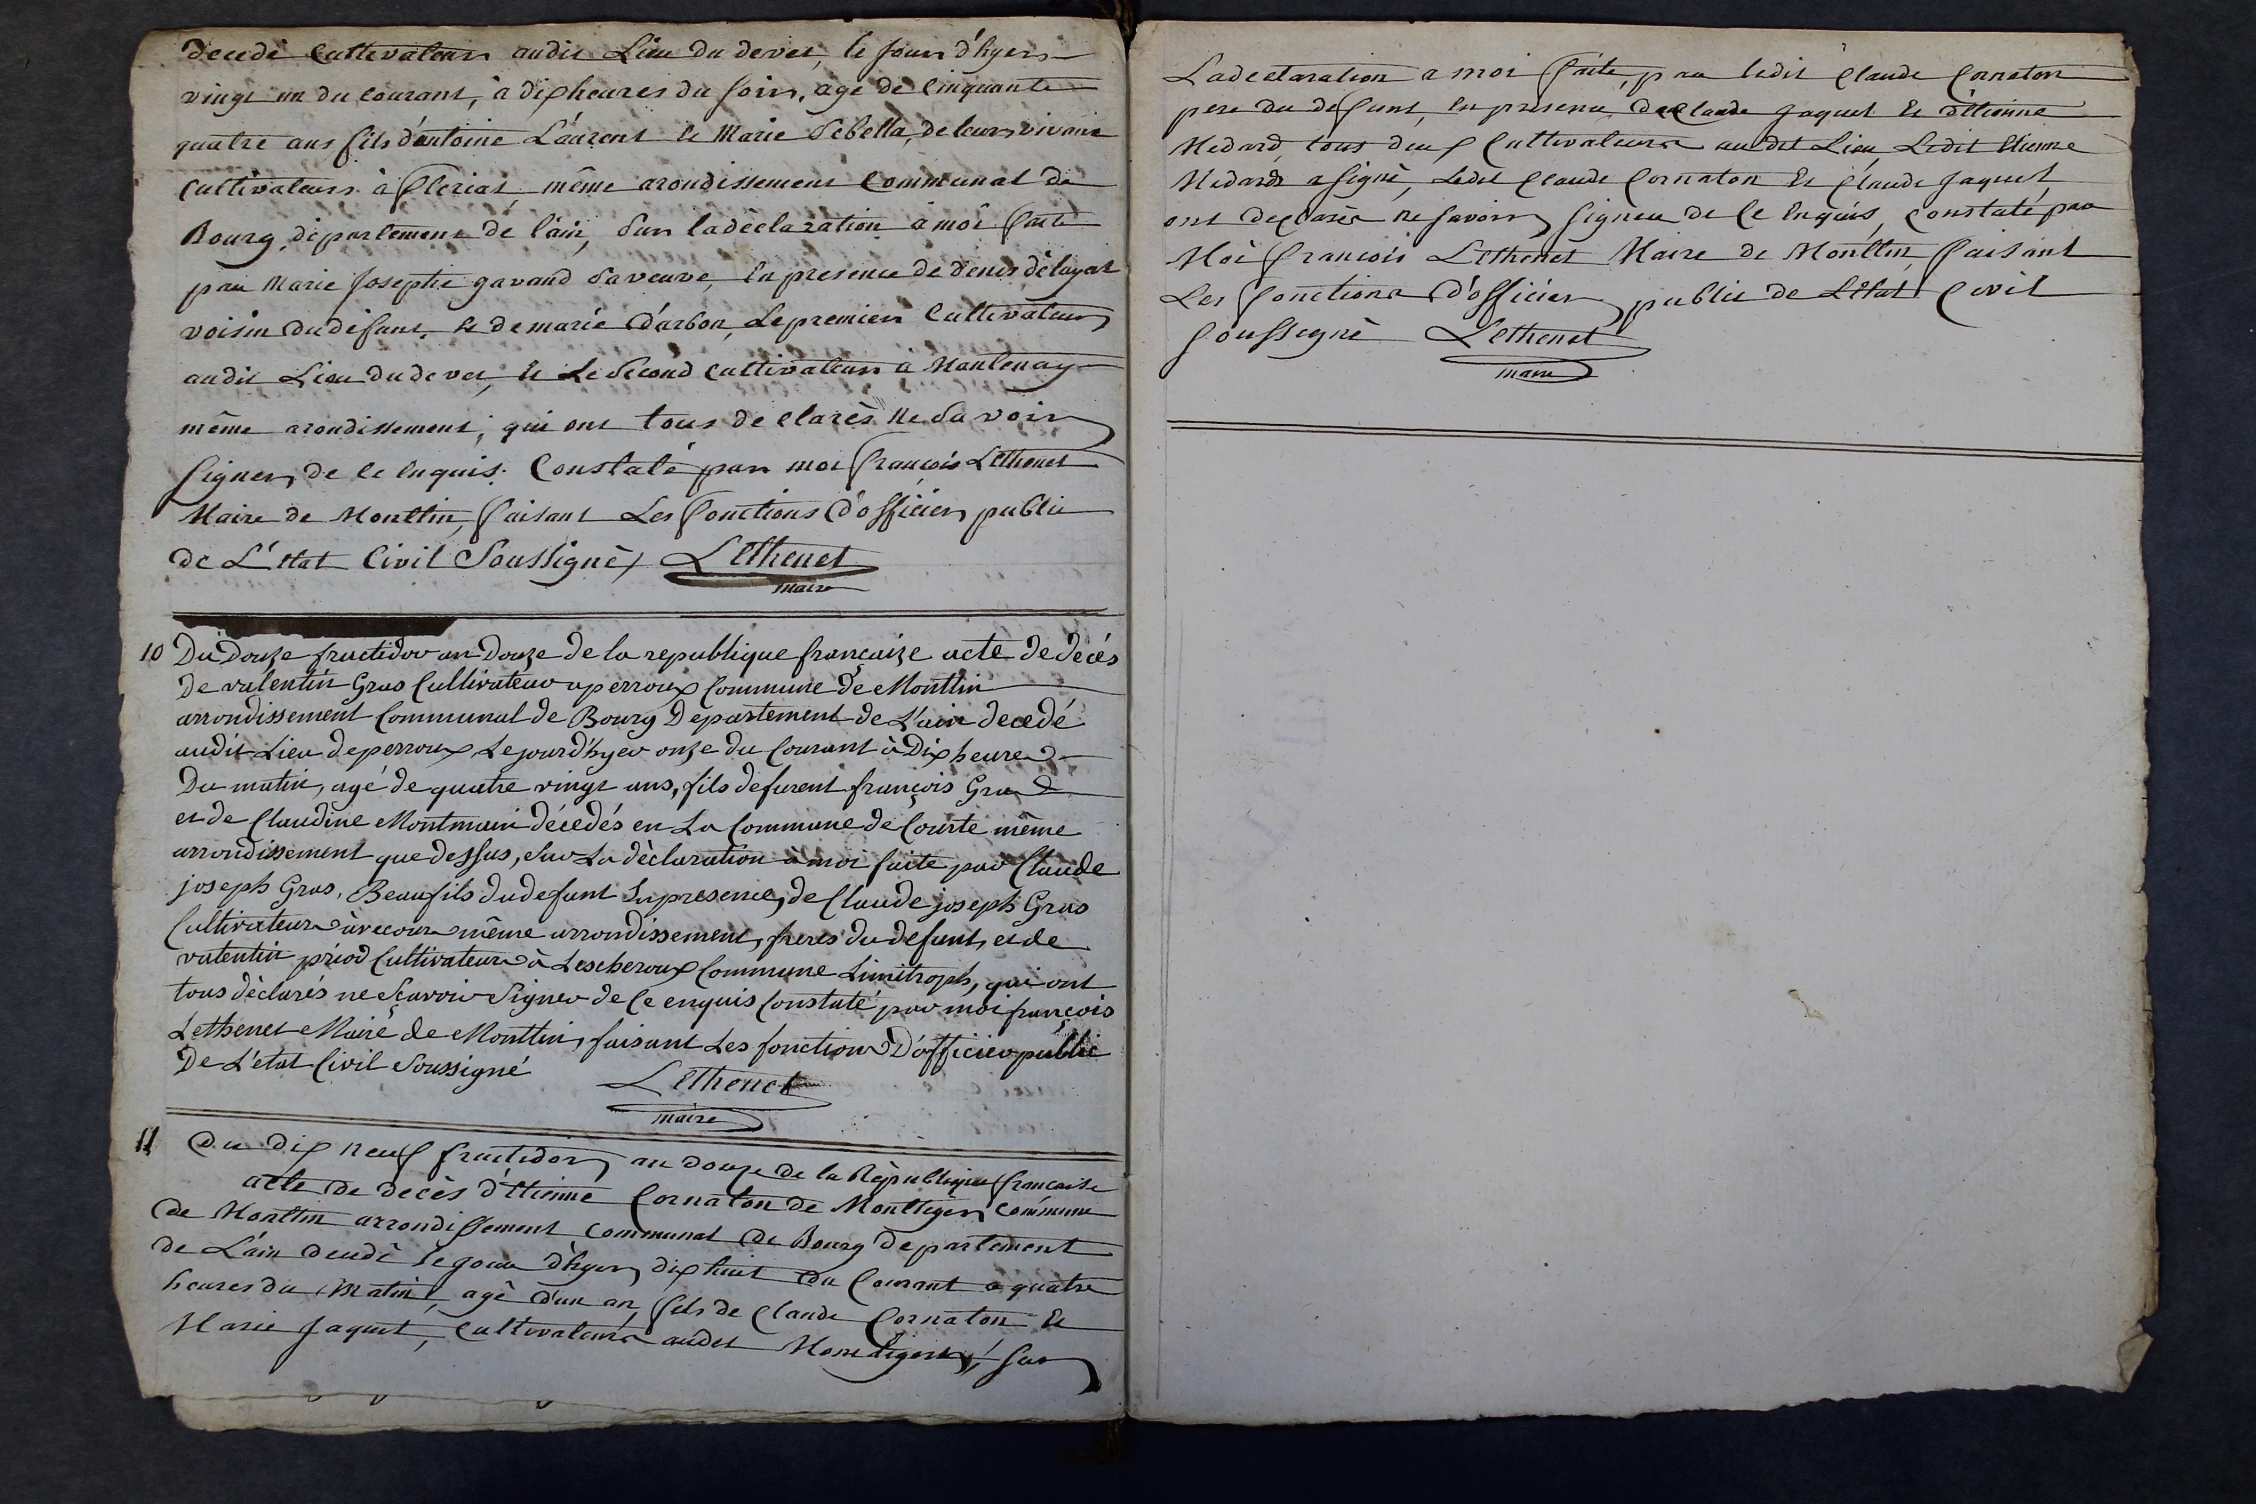 decedé Cultivateur audit Lieu du devet, le jour d'hyer
vingt un du courant, à dix heures du soir, agé de Cinquante
quatre ans fils d'antoine Laurent et Marie Sebella, de leurs vivant
Cultivateurs à fleriat, même arondissement Communal de
Bourg, département de l'ain, sur la dèclaration à moi faite
par Marie Josephe gavand sa veuve, En presence de Denis délayat
voisin du défunt, et de marie d'arbon, Le premier Cultivateur
audit Lieu du devet, et Le Second Cultivateur à Mantenay
même arondissement, qui ont tous declarès Ne Savoir
Signer, de ce enquis. Constaté par moi françois Lethenet
Maire de Montlin, faisant Les fonctions d'officier public
de L'état Civil Soussigné, Lethenet
maire
10 Du Douze fructidor an Douze de la republique française acte de décés
De valentin Gras Cultivateur a perroux Commune de Montlin
arrondissement Communal de Bourg Departement de L'ain decedé
audit Lieu de perroux Le jour d'hyer onze du Courant à Dix heures
Du matin, agé de quatre vingt ans, fils de furent françois Gras
et de Claudine Montmain décédés en La Commune de Courte même
arrondissement que dessus, sur La dèclaration à moi faite par Claude
joseph Gras, Beaufils du defunt En presence, de Claude joseph Gras
Cultivateur à vecour même arrondissement, freres du defunt, et de
valentin priod Cultivateur à Lescheroux Commune Limitroph, qui ont
tous dèclarés ne Sçavoir Signer de Ce enquis Constaté par moi françois
Lethenet Maire de Montlin, faisant Les fonctions D'officier public
De L'état Civil Soussigné Lethenet
maire
11 Du dix neuf fructidor, an douze de la Rèpublique francaise
acte de decès d'Etienne Cornaton de Montliger, commune
de Montlin arrondissement communal de Bourg departement
de L'ain decedé le jour d'hyer, dix huit du Courant a quatre
heures du Matin, agè d'un an, fils de Claude Cornaton Et
Marie Jaquet, Cultivateurs audit Montligert, sur
La declaration a moi faite, par ledit Claude Cornaton
pere du defunt, En presence, de Claude Jaquet Et d'Etienne
Medard, tous deux Cultivateurs au dit Lieu, Ledit Etienne
Medard a signé, Ledit Claude Cornaton Et Claude Jaquet
ont declarès ne Savoir, Signer de Ce Enquis, Constaté par
Moi francois Lethenet Maire de Montlin, faisant
Les fonctions d'officier, public de L'état Civil
soussigné Lethenet
maire